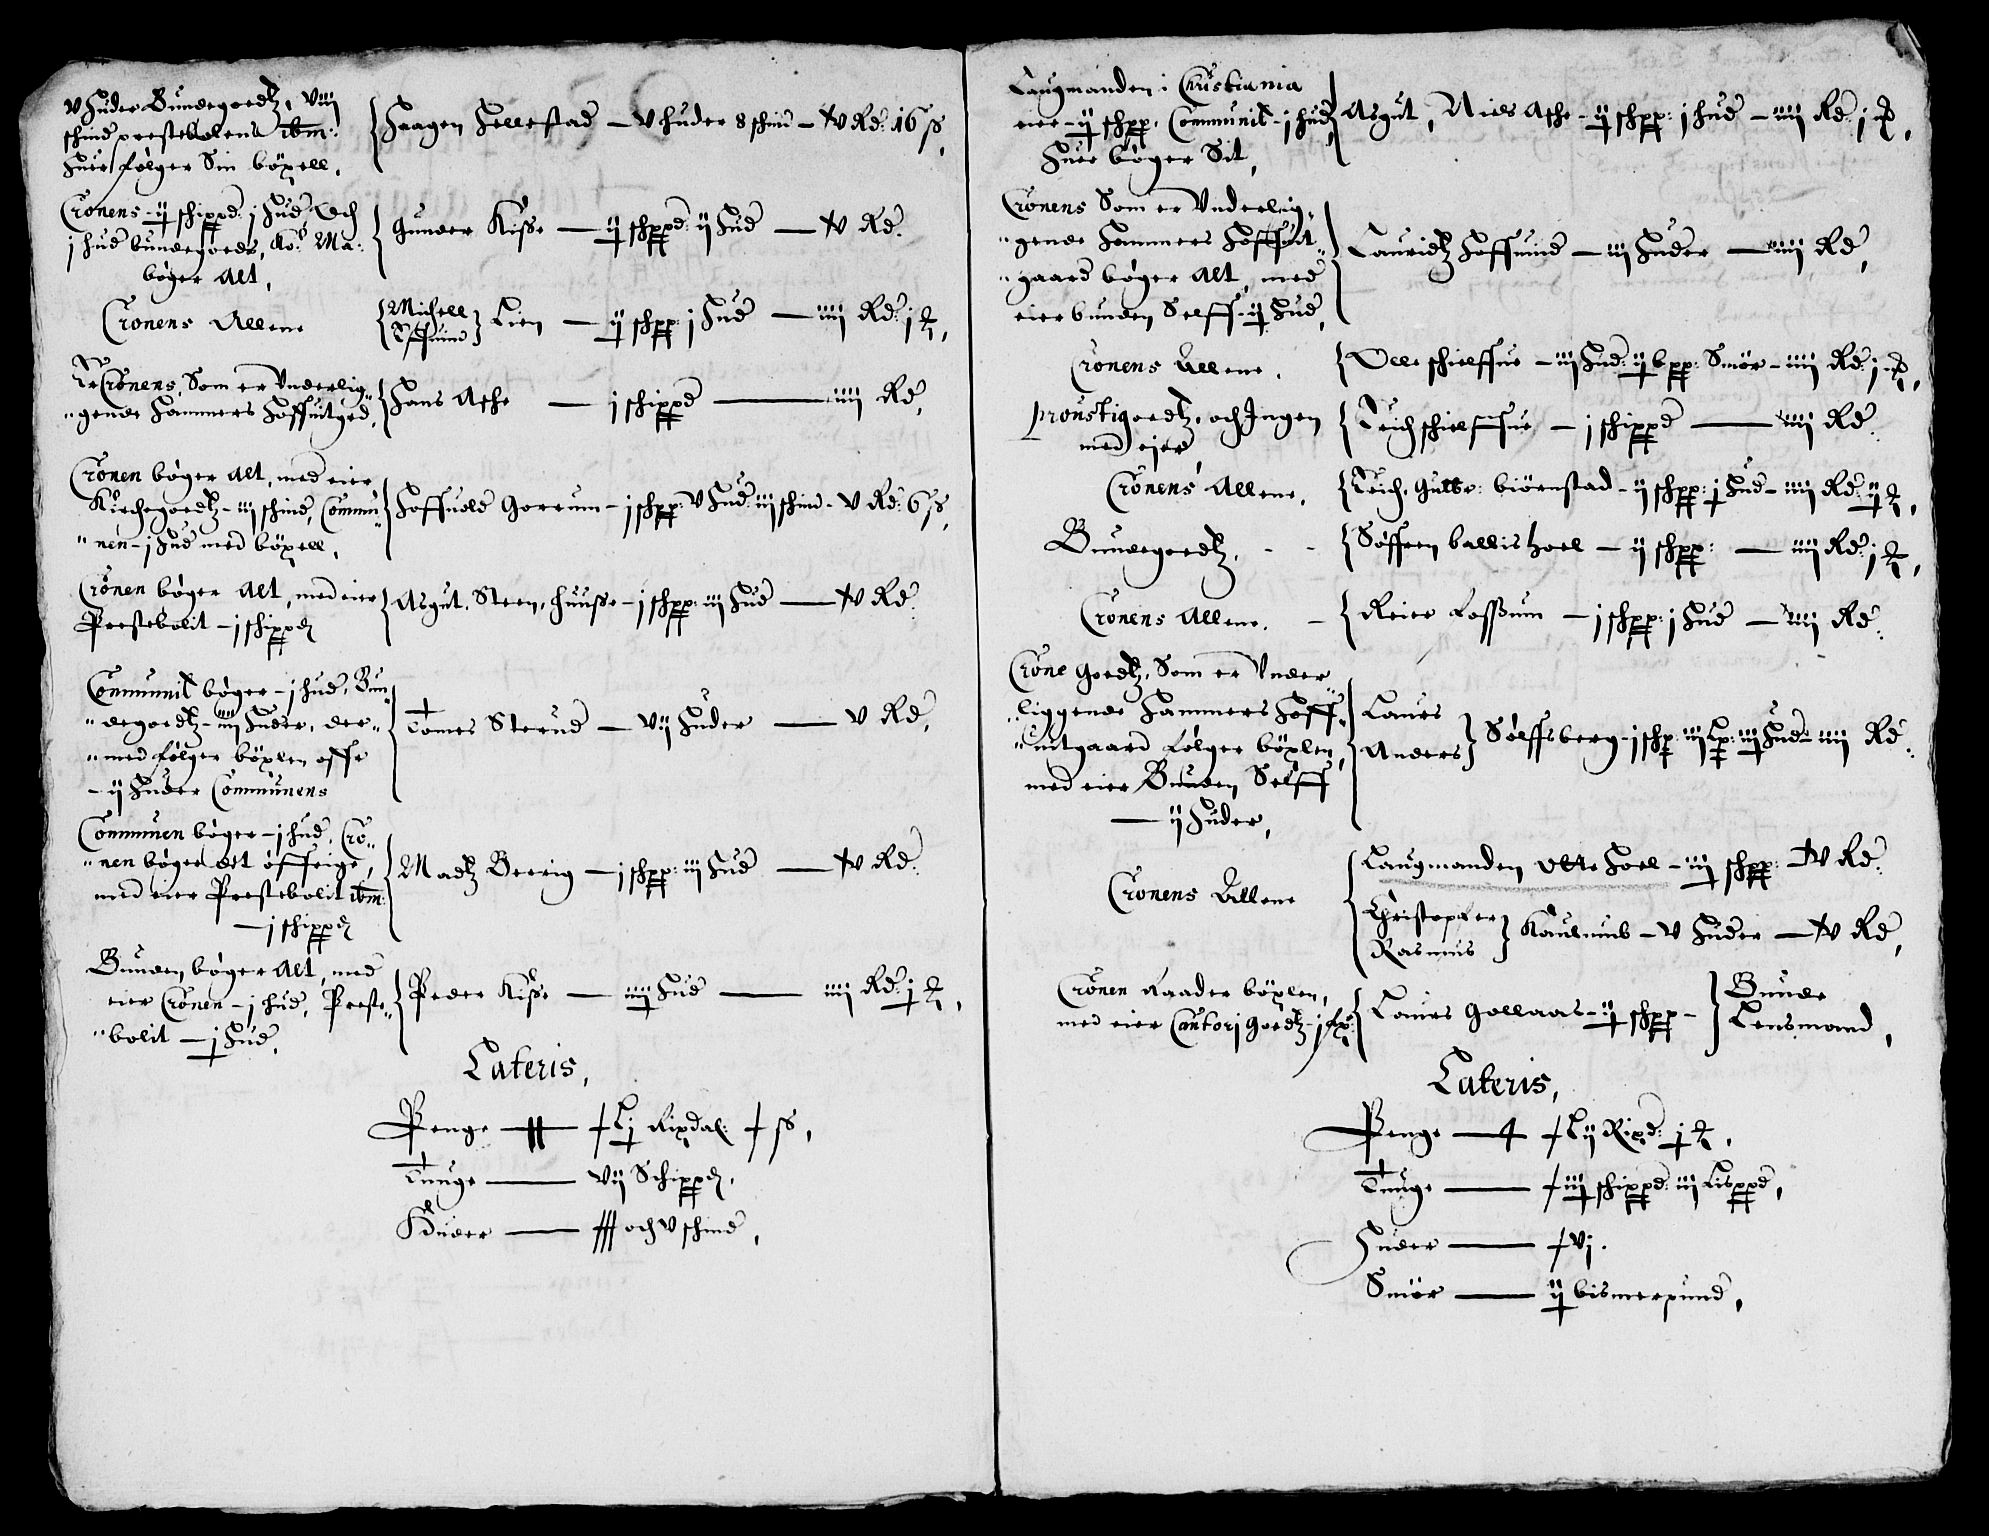 v huder Bundegoedtz, viii
schind prestebolens ibm:
huer følger Sin böxell,
Haagen Hellestad — v huder 8 schind — v Rd: 16 ß,
Cronens ij schippd: j hud Och
j hud bundegoeds, Ko: Ma:
bøger Alt,
Gunder Kiße — ij schppd: ij hud — v Rd:
Cronens Allene
Michell
Effuind
Lien — ij schpp: j hud — iiij Rd: j
Er Cronens, Som er Vnderlig„
„gende Hammers Hoffuitged,
Hans Aske — j schippd — iiij Rd,
Cronen bøger Alt, med eier
Kirchegoedtz — iij schind, Commu„
„nen — j hud med böxell,
Hoffuold Gorrum — j schpp: v hud: iij schind — v Rd: 6 ß,
Cronen bøger Alt, med eier
Prestebolit — j schippd
Asgut, Steen, huusse — j schpp: iij hud — v Rd:
Communit bøger — j hud, Bun„
„degoedtz — iiij huder, der„
„med følger böxlen offr
— ij huder Communens
Tomes Sterud — vij huder — v Rd,
Communen bøger — j hud, Cro„
„nen bøger det øffrige,
med eier Prestebolit ibm:
— j schippd
Madtz Berrig — j schpp: iij hud — v Rd:
Bunden bøger Alt, med
eier Cronen — j hud, Preste„
„bolit — j hud,
Peder Kiße — iiij hud — iiij Rd: j
Lateris,
Penge — Lj Rixdal:
Tunge — vij Schippd,
Huder — och v schind,
Laugmanden i Christiania
eier — ij schpp, Communit — j hud,
Huer bøger Sit,
Asgut, Nies Aske — ij schpp: j hud — iiij Rd: j
Cronens Som er Vnderlig„
„gende Hammers Hoffuit„
„gaard bøger Alt, med
eier bunden Selff — ij hud,
Lauridtz Hoffuind — iij huder — iiij Rd,
Cronens Allene,
Olle schielffue — iij hud: ij bpp: Smør — iiij Rd: j
proustigoedtz, och Ingen
med eier
Reich schielffue — j schippd — iiij Rd:
Cronens Allene,
Reich, Gulbr: biörnstad — ij schpp: j hud — iiij Rd:
Bundegoedtz,
Söffren ballishoel — ij schpp: — iiij Rd: j
Cronens Allene,
Reier Foßum — j schpp: j hud — iiij Rd:
Crone goedtz, Som er Vnder„
„liggende Hammers Hoff„
„uitgaard følger böxlen,
med eier Bunden Selff
— ij huder,
Laurs
Anders
Sølffsberg — j schp: iij Lp: iij hud — iiij Rd:
Cronens Allene
Laugmanden Otte Hoel — iij schpp: — v Rd:
Christopher
Rasmus
Kaulumb — v huder — v Rd,
Cronen Raader böxlen,
med eier Cantorj goedtz — j
Laurs Gollaas — ij schpp —
Bunde
Lensmand,
Lateris,
Penge — Lij Rixd: j
Tunge — iij schippd: iij Lisppd,
Huder — vj.
Smör — ij bismerpund,